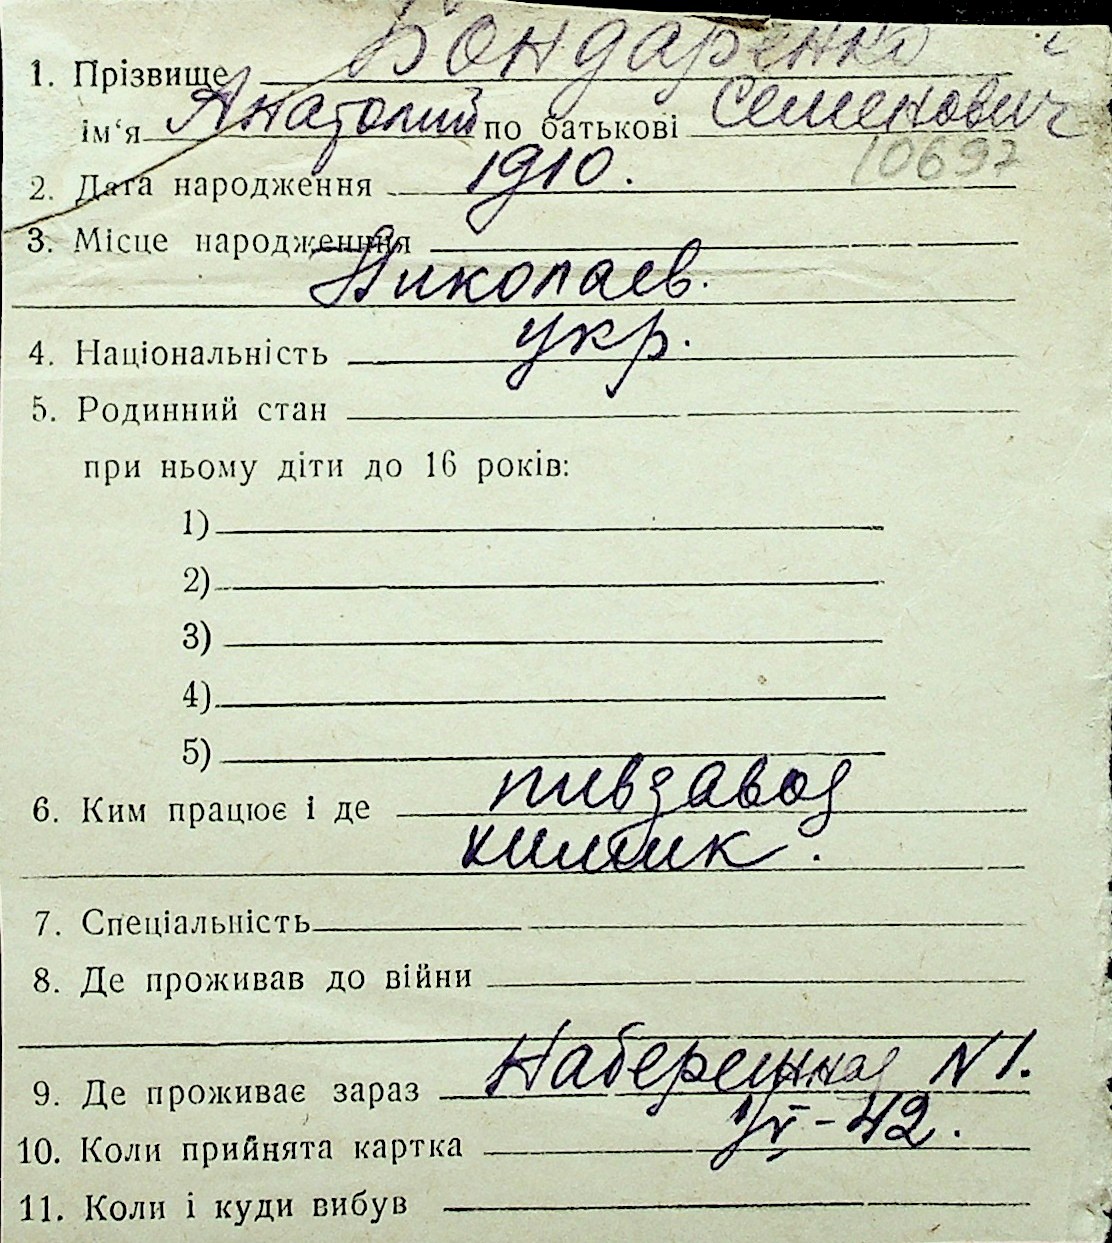 1. Прізвище Бондаренко
ім‘я Анатолий по батькові Семенович
10697
2. Дата народження 1910.
3. Місце народження
Николаев.
4. Національність укр.
5. Родинний стан
при ньому діти до 16 років:
1)
2)
3)
4)
5)
6. Ким працює і де пивзавод
химик.
7. Спеціальність
8. Де проживав до війни
9. Де проживає зараз Набережная N 1.
10. Коли прийнята картка -42.
11. Коли і куди вибув